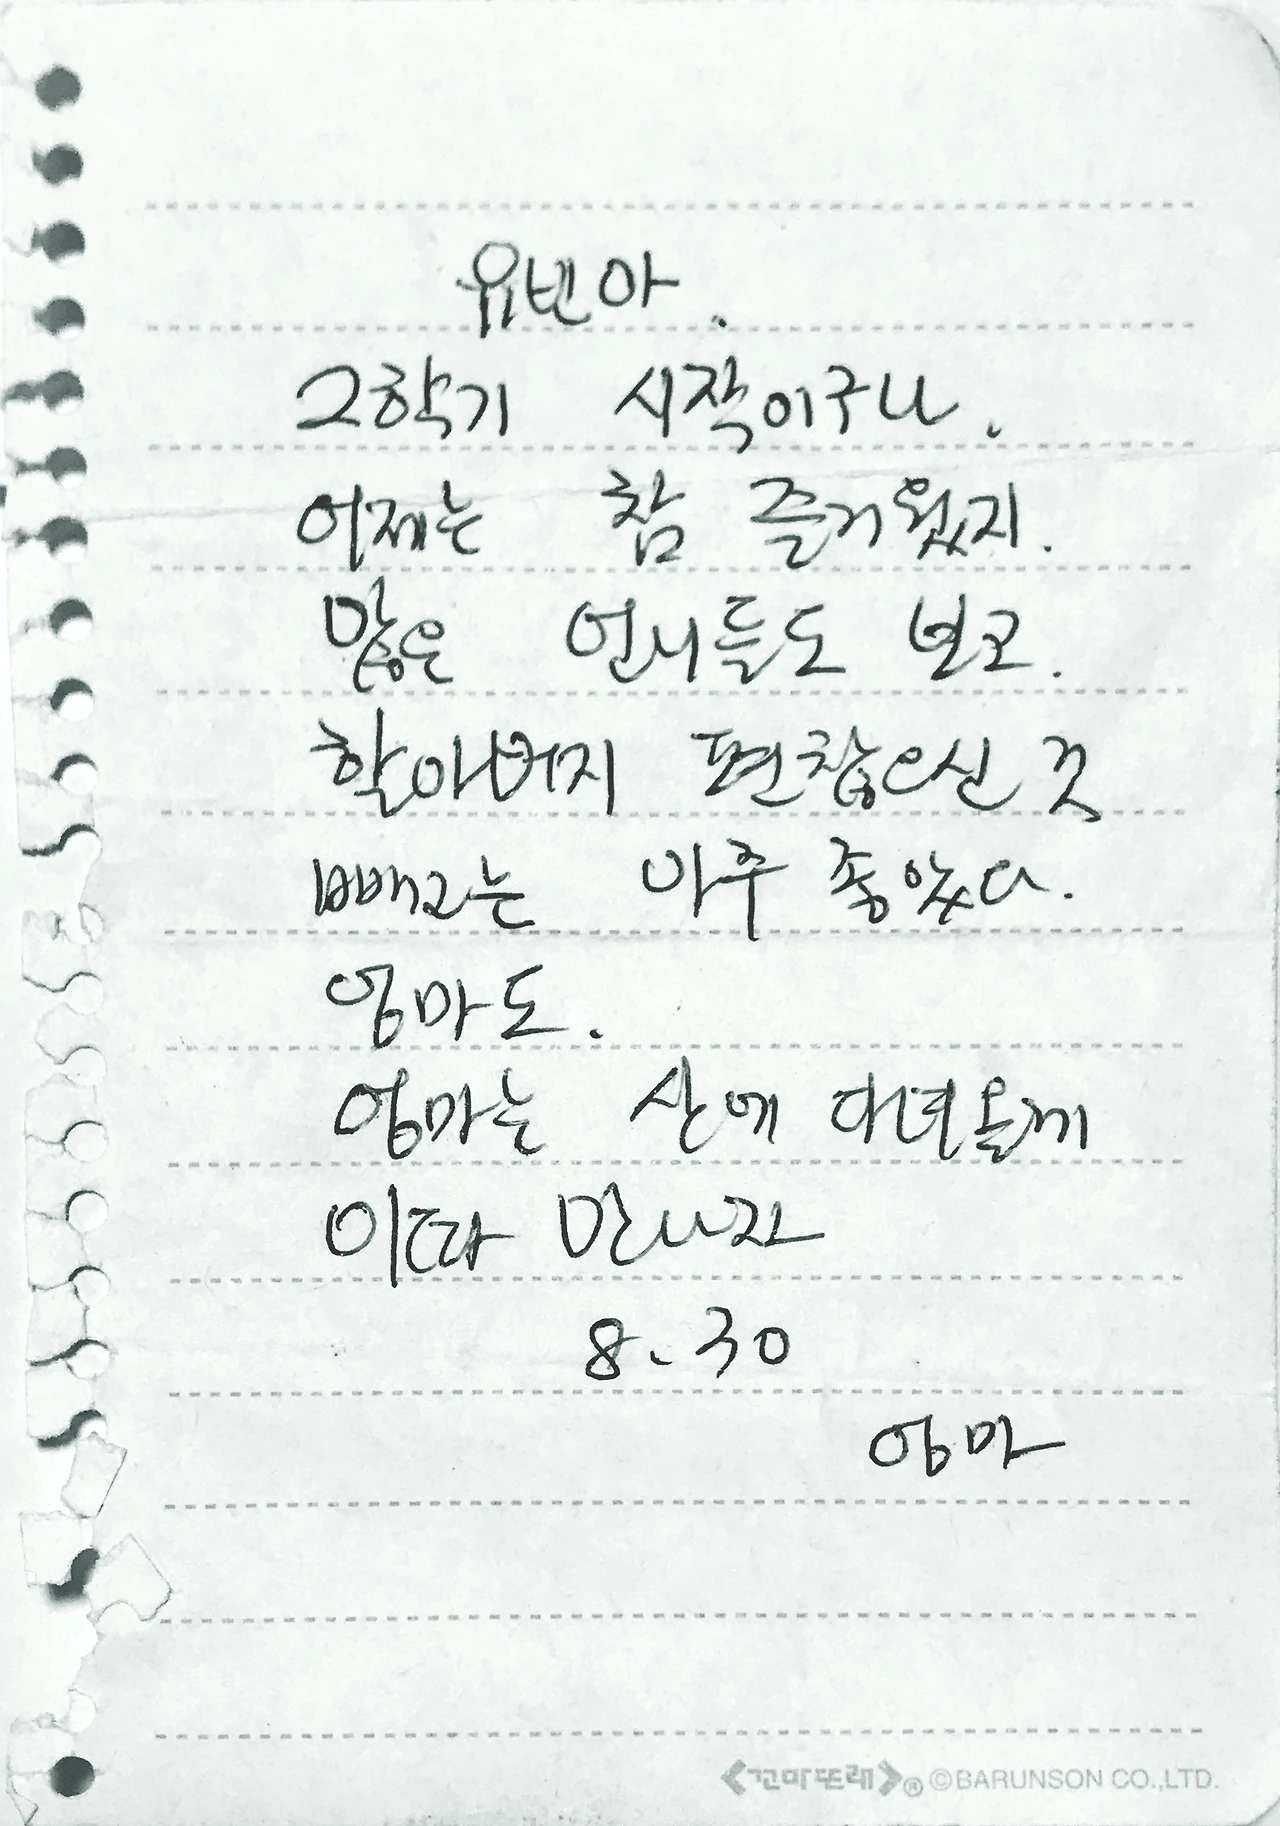 유빈아.
2학기 시작이구나.
어제는 참 즐거웠지.
많은 언니들도 보고.
할아버지 편찮으신 것
빼고는 아주 좋았다.
엄마도.
엄마는 산에 다녀올께
이따 만나자
8.30
엄마
<꼬마또래>® ©BARUNSON CO.,LTD.